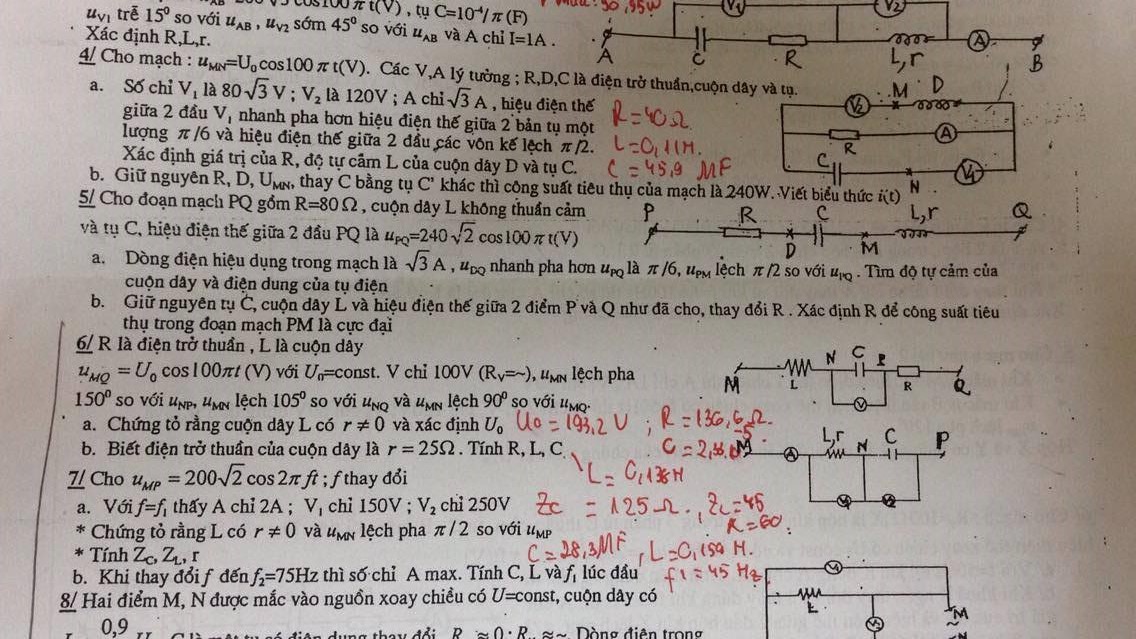 cos100πt(V), tụ C=10⁻⁴/π (F)
u_V1 trễ 15⁰ so với u_AB, u_V2 sớm 45⁰ so với u_AB và A chỉ I=1A.
Xác định R,L,r.
A C R L,r A B
V₁ V₂
4/ Cho mạch : u_MN=U₀cos100πt(V). Các V,A lý tưởng ; R,D,C là điện trở thuần,cuộn dây và tụ.
a. Số chỉ V₁ là 80√3 V ; V₂ là 120V ; A chỉ √3 A , hiệu điện thế
giữa 2 đầu V₁ nhanh pha hơn hiệu điện thế giữa 2 bản tụ một
lượng π/6 và hiệu điện thế giữa 2 đầu các vôn kế lệch π/2.
Xác định giá trị của R, độ tự cảm L của cuộn dây D và tụ C.
R=40Ω
L=0,11H.
C=45,9 MF
V₂ M D
R A
C N V₁
b. Giữ nguyên R, D, U_MN, thay C bằng tụ C' khác thì công suất tiêu thụ của mạch là 240W. Viết biểu thức i(t)
5/ Cho đoạn mạch PQ gồm R=80Ω, cuộn dây L không thuần cảm
và tụ C, hiệu điện thế giữa 2 đầu PQ là u_PQ=240√2 cos100πt(V)
P R D C M L,r Q
a. Dòng điện hiệu dụng trong mạch là √3 A , u_DQ nhanh pha hơn u_PQ là π/6, u_PM lệch π/2 so với u_PQ . Tìm độ tự cảm của
cuộn dây và điện dung của tụ điện
b. Giữ nguyên tụ C, cuộn dây L và hiệu điện thế giữa 2 điểm P và Q như đã cho, thay đổi R . Xác định R để công suất tiêu
thụ trong đoạn mạch PM là cực đại
6/ R là điện trở thuần , L là cuộn dây
u_MQ = U₀ cos100πt (V) với U₀=const. V chỉ 100V (R_V=~), u_MN lệch pha
150⁰ so với u_NP, u_MN lệch 105⁰ so với u_NQ và u_MN lệch 90⁰ so với u_MQ.
M L N C P R Q
V
a. Chứng tỏ rằng cuộn dây L có r ≠ 0 và xác định U₀
U₀ = 193,2 V ; R = 136,6 Ω
b. Biết điện trở thuần của cuộn dây là r = 25Ω . Tính R, L, C.
L = 0,138 H
7/ Cho u_MP = 200√2 cos2πft ; f thay đổi
a. Với f=f₁ thấy A chỉ 2A ; V₁ chỉ 150V ; V₂ chỉ 250V
Zc = 125Ω. Z_L=45
R=60.
M A L,r N C P
* Chứng tỏ rằng L có r ≠ 0 và u_MN lệch pha π/2 so với u_MP
* Tính Z_C, Z_L, r
C=28,3MF , L=0,159 H.
b. Khi thay đổi f đến f₂=75Hz thì số chỉ A max. Tính C, L và f₁ lúc đầu
f1 = 45 Hz
8/ Hai điểm M, N được mắc vào nguồn xoay chiều có U=const, cuộn dây có
M
0,9
C là một tụ có điện dung thay đổi. ≈ 0 ; ≈ ~. Dòng điện trong